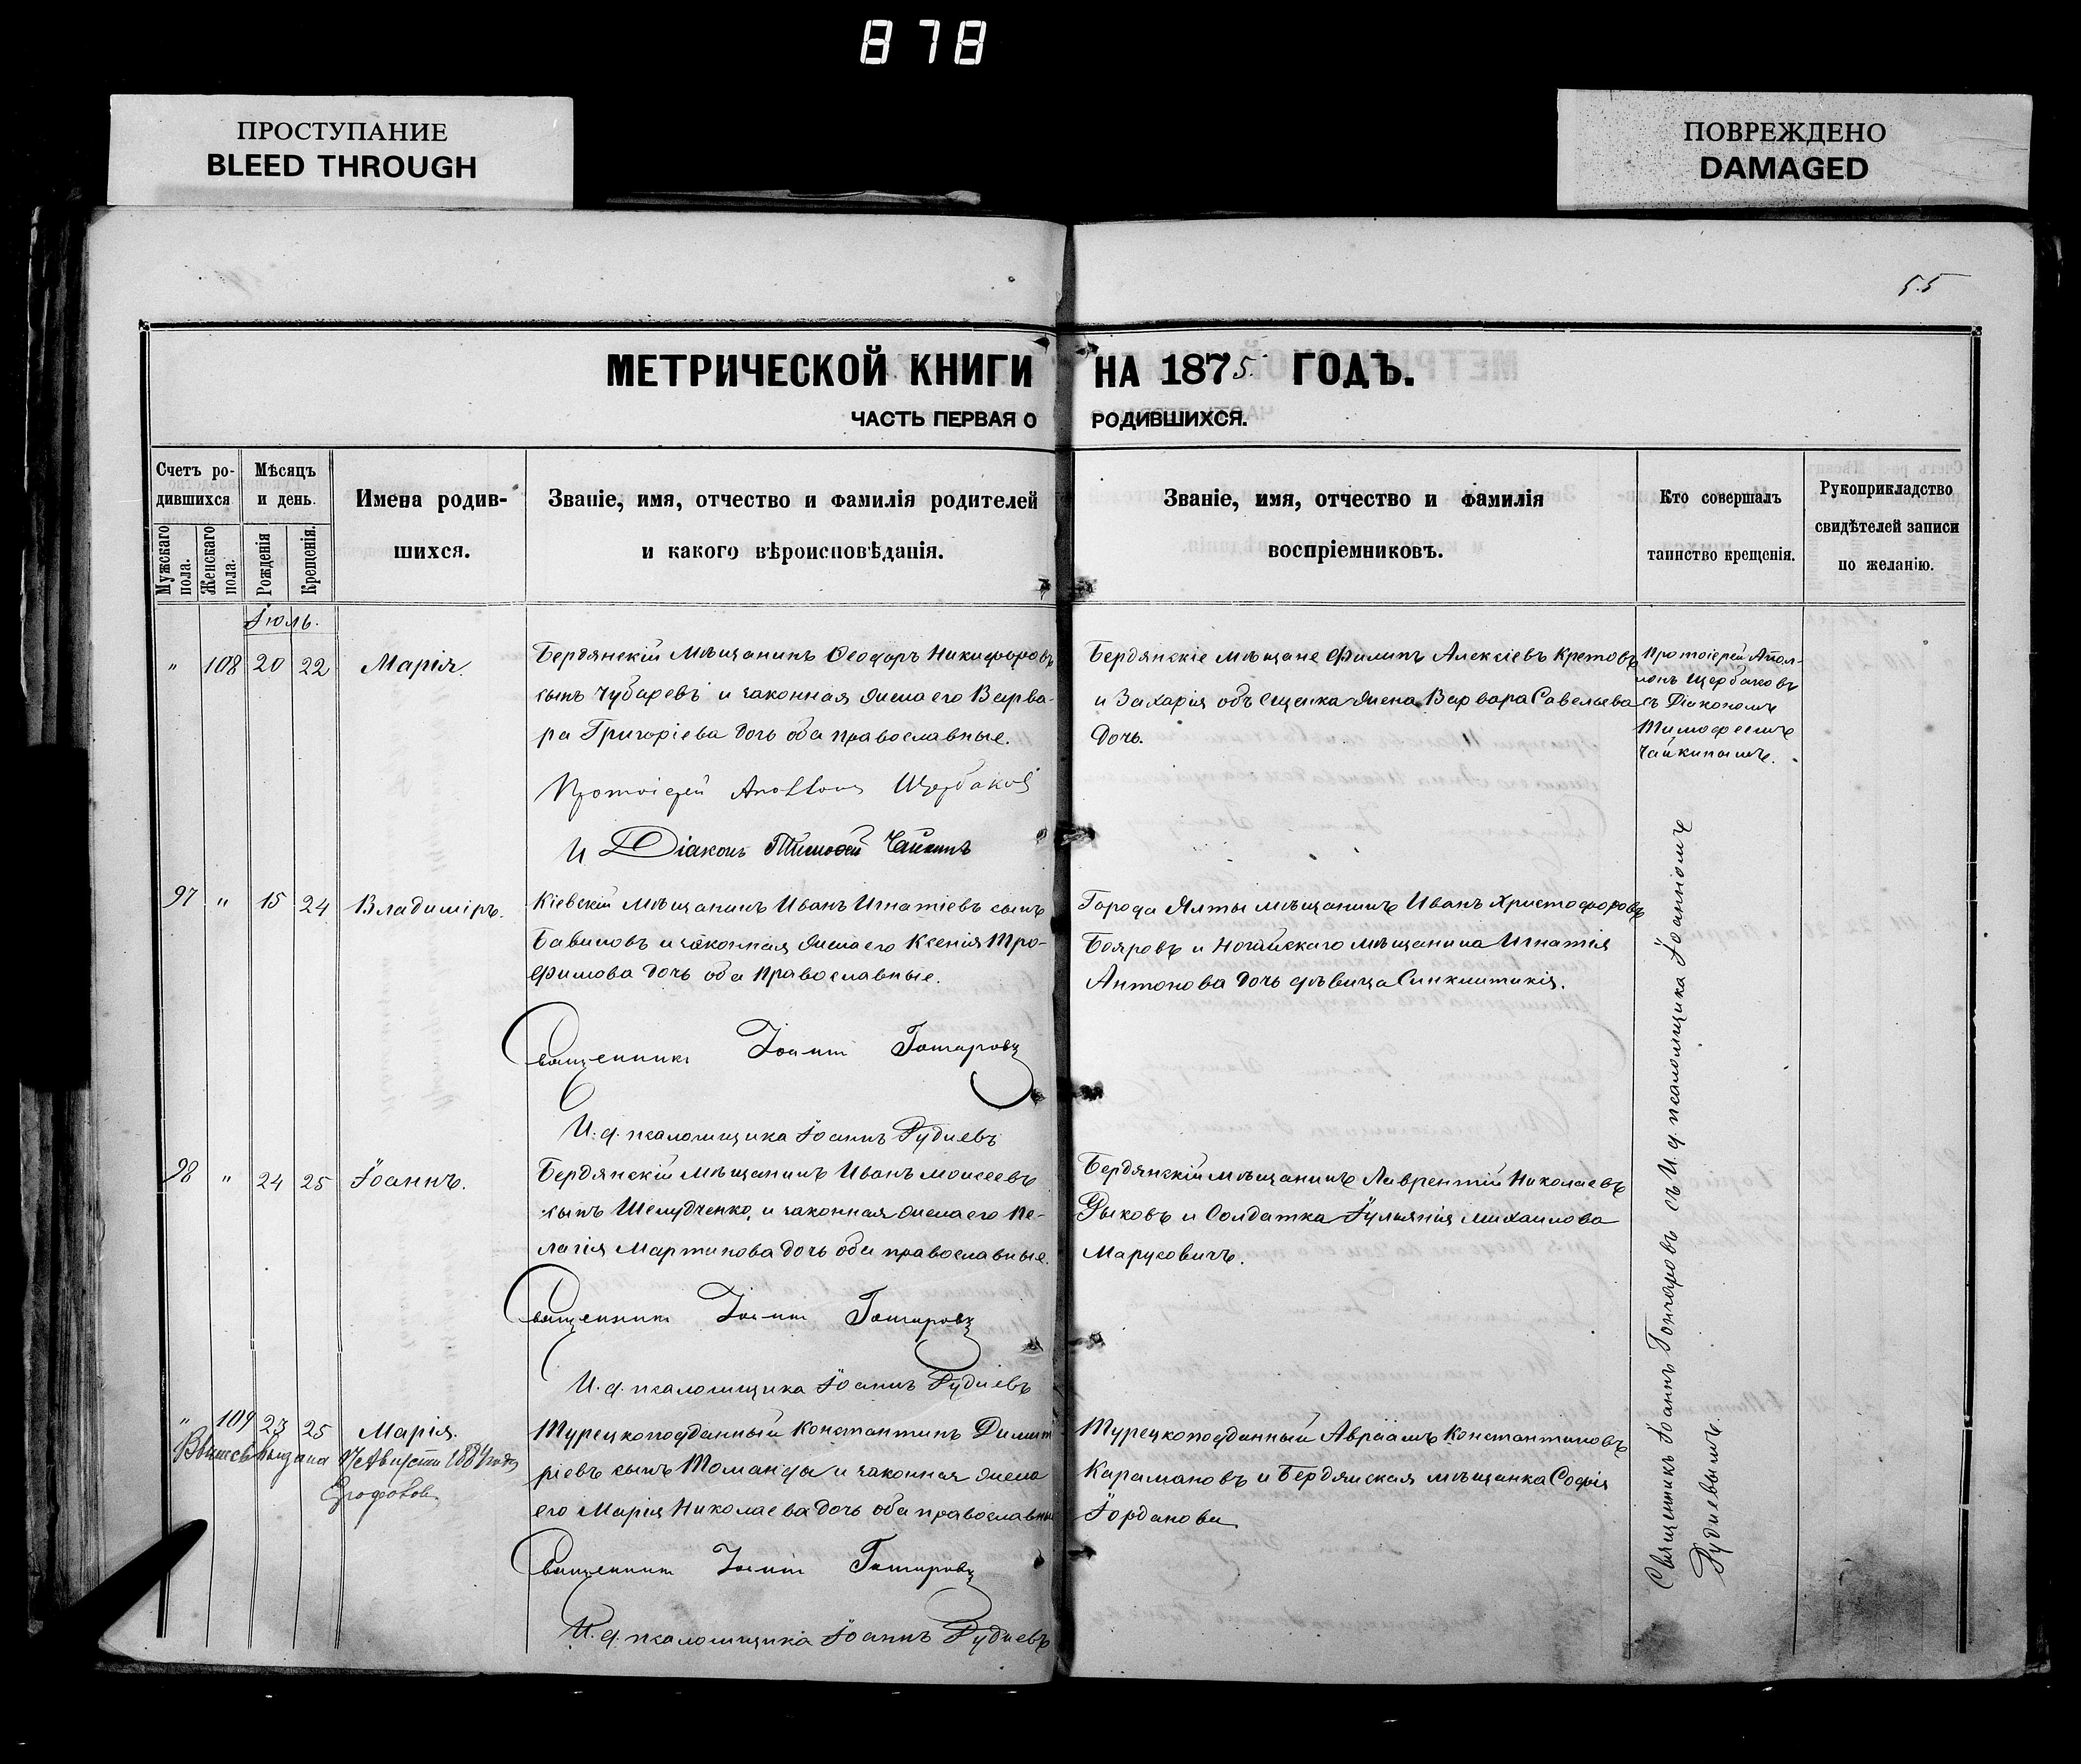 878
ПРОСТУПАНИЕ
BLEED THROUGH
ПОВРЕЖДЕНО
DAMAGED
55
МЕТРИЧЕСКОЙ КНИГИ НА 1875 ГОДЪ.
ЧАСТЬ ПЕРВАЯ О РОДИВШИХСЯ.
Счетъ ро-
дившихся
Мужскаго пола.
Женскаго пола.
Мѣсяцъ
и день.
Рожденія
Крещенія.
Имена родив-
шихся.
Званіе, имя, отчество и фамилія родителей
и какого вѣроисповѣданія.
Званіе, имя, отчество и фамилія
воспріемниковъ.
Кто совершалъ
таинство крещенія.
Рукоприкладство
свидѣтелей записи
по желанію.
Іюль.
" 108 20 22 Марія.
Бердянскій Мѣщанинъ Ѳеодоръ Никифоровъ
сынъ Чубаревъ и законная жена его Варва-
ра Григоріева дочь оба православные.
Протоіерей Аполлонъ Щербаковъ
И Діаконъ Тимоѳей Чайкинъ
Бердянскіе мѣщане Филипъ Алексіевъ Кретовъ
и Захарія жена Варвара Савельева
дочь.
Протоіерей Апол-
лонъ Щербаковъ
съ Діакономъ
Тимофеемъ
Чайкинымъ.
97 " 15 24 Владиміръ.
Кіевскій Мѣщанинъ Иванъ Игнатіевъ сынъ
и законная жена его Ксенія Тро-
фимова дочь оба Православные.
Священникъ Іоаннъ Гончаровъ
И. д. псаломщика Іоаннъ Рудневъ
Города Ялты мѣщанинъ Иванъ Христофоровъ
Бояровъ и Ногайскаго мѣщанина Игнатія
Антонова дочь дѣвица Синклитикія.
98 " 24 25 Іоаннъ.
Бердянскій мѣщанинъ Иванъ Моисеевъ
сынъ Шелудченко, и законная жена его Пе-
лагія Мартинова дочь оба православные.
Священникъ Іоаннъ Гончаровъ
И. д. псаломщика Іоаннъ Рудневъ
Бердянскій мѣщанинъ Лаврентій Николаевъ
Рыковъ и Солдатка Іульянія Михаилова
Марусовичъ.
" 109 23 25 Марія.
выдана 17 Августа 1884 года
Турецкоподданный Константинъ Димит
ріевъ сынъ Томанды и законная жена
его Марія Николаева дочь оба православные
Священникъ Іоаннъ Гончаровъ
И. д. псаломщика Іоаннъ Рудневъ
Турецкоподданный Авраамъ Константиновъ
Карамановъ и Бердянская мѣщанка Софія
Іорданова
Священникъ Іоаннъ Гончаровъ съ И. д. псаломщика Іоанномъ
Рудневымъ.